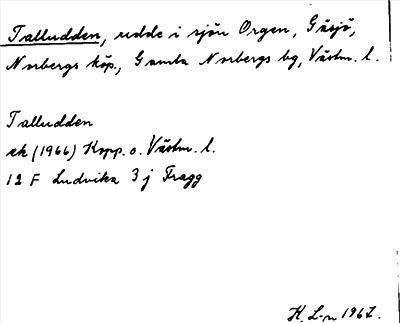 Talludden, udde i sjön Orgen, Gåsjö,
Norbergs köp., Gamla Norbergs bg, Västm. l.
Talludden
ek (1966) Kopp. o. Västm. l.
12 F Ludvika 3 j Fragg
K. L-n 1967.